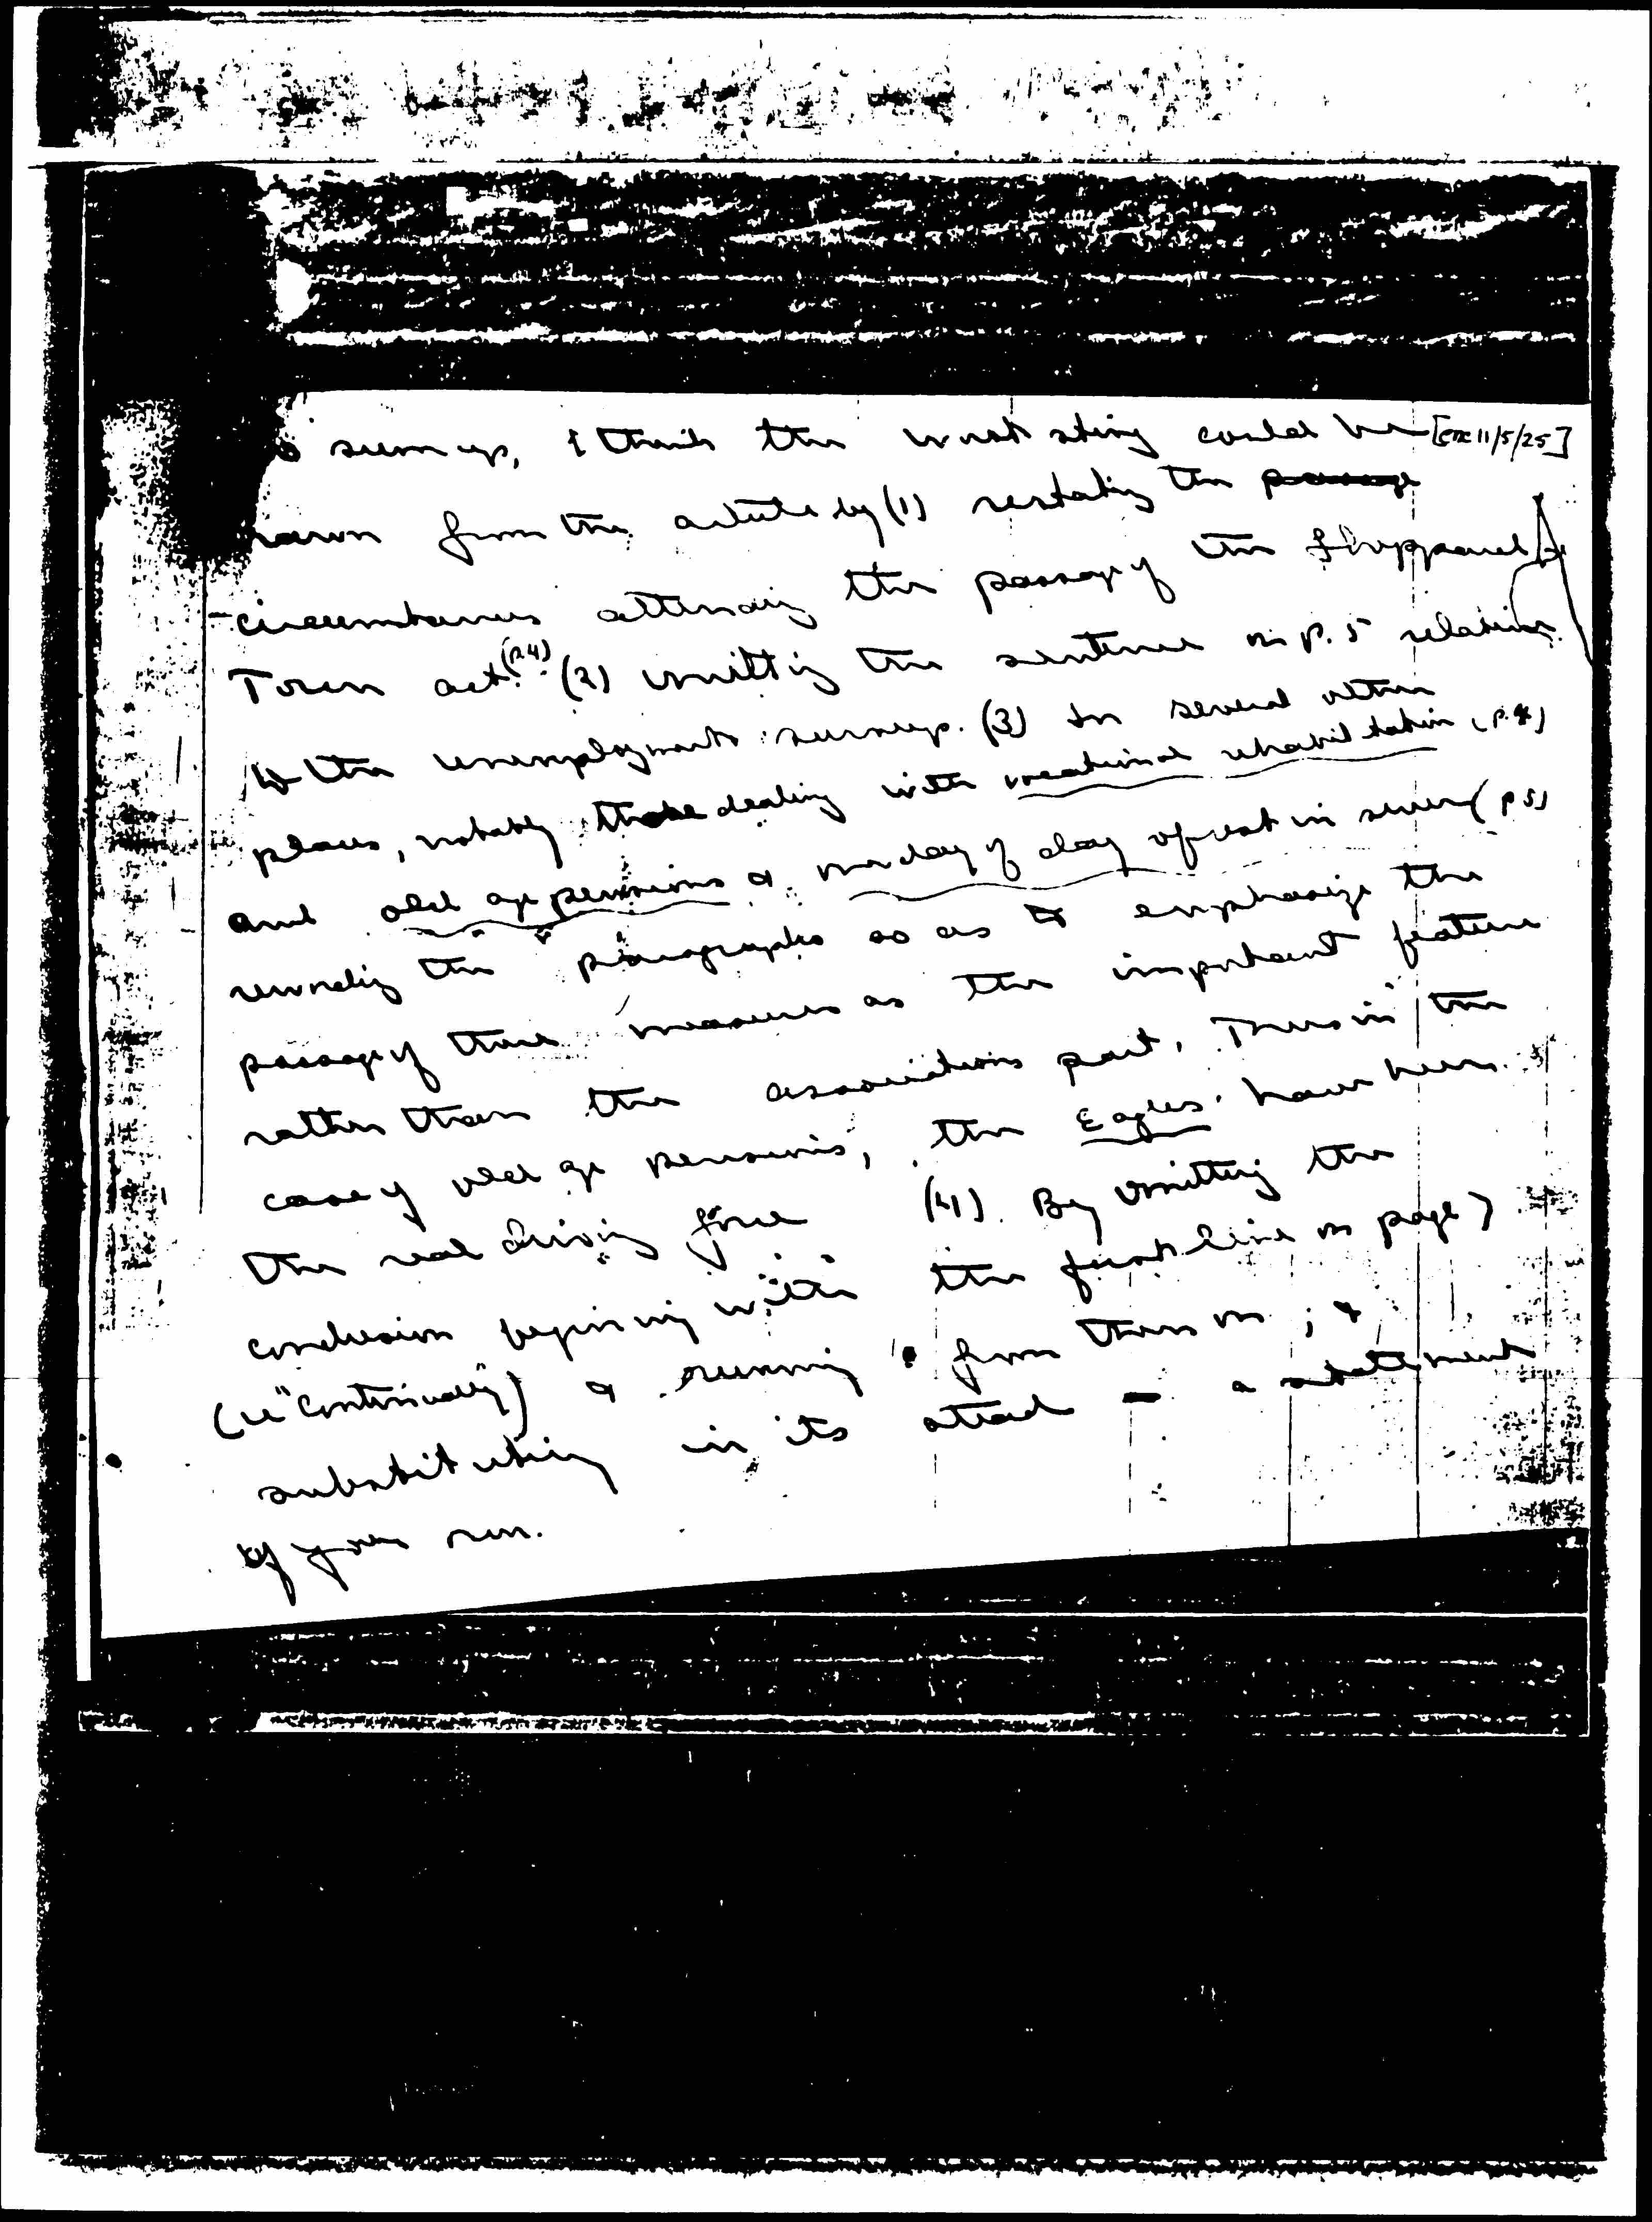 sum up, I think the worst sting could be [circ 11/5/25]
drawn from the article by (1) restating the passage
circumstances attending the passage of the Sheppard
Towner act (p.4). (2) omitting the sentence on p. 5 relating
to the unemployment survey. (3) In several other
places, notably those dealing with vocational rehabilitation (p.4)
and old age pensions & one day of rest in seven (p 5)
rewording the paragraphs so as to emphasize the
passage of these measures as the important feature
rather than the associations part. Thus in the
case of old age pensions, the Eagles have been
the real driving force (4). By omitting the
conclusion beginning with the first line on page 7
(ie "Continually") & running from then on; &
substituting in its stead - a statement
of your own.